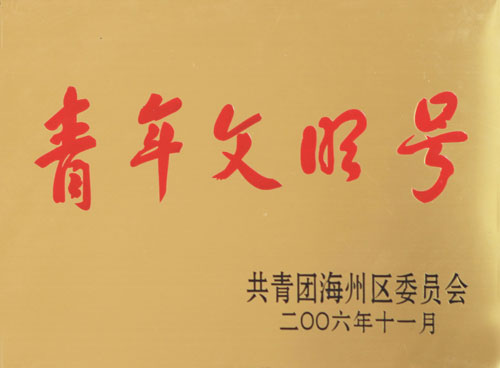 青年文明号
共青团海州区委员会
二〇〇六年十一月